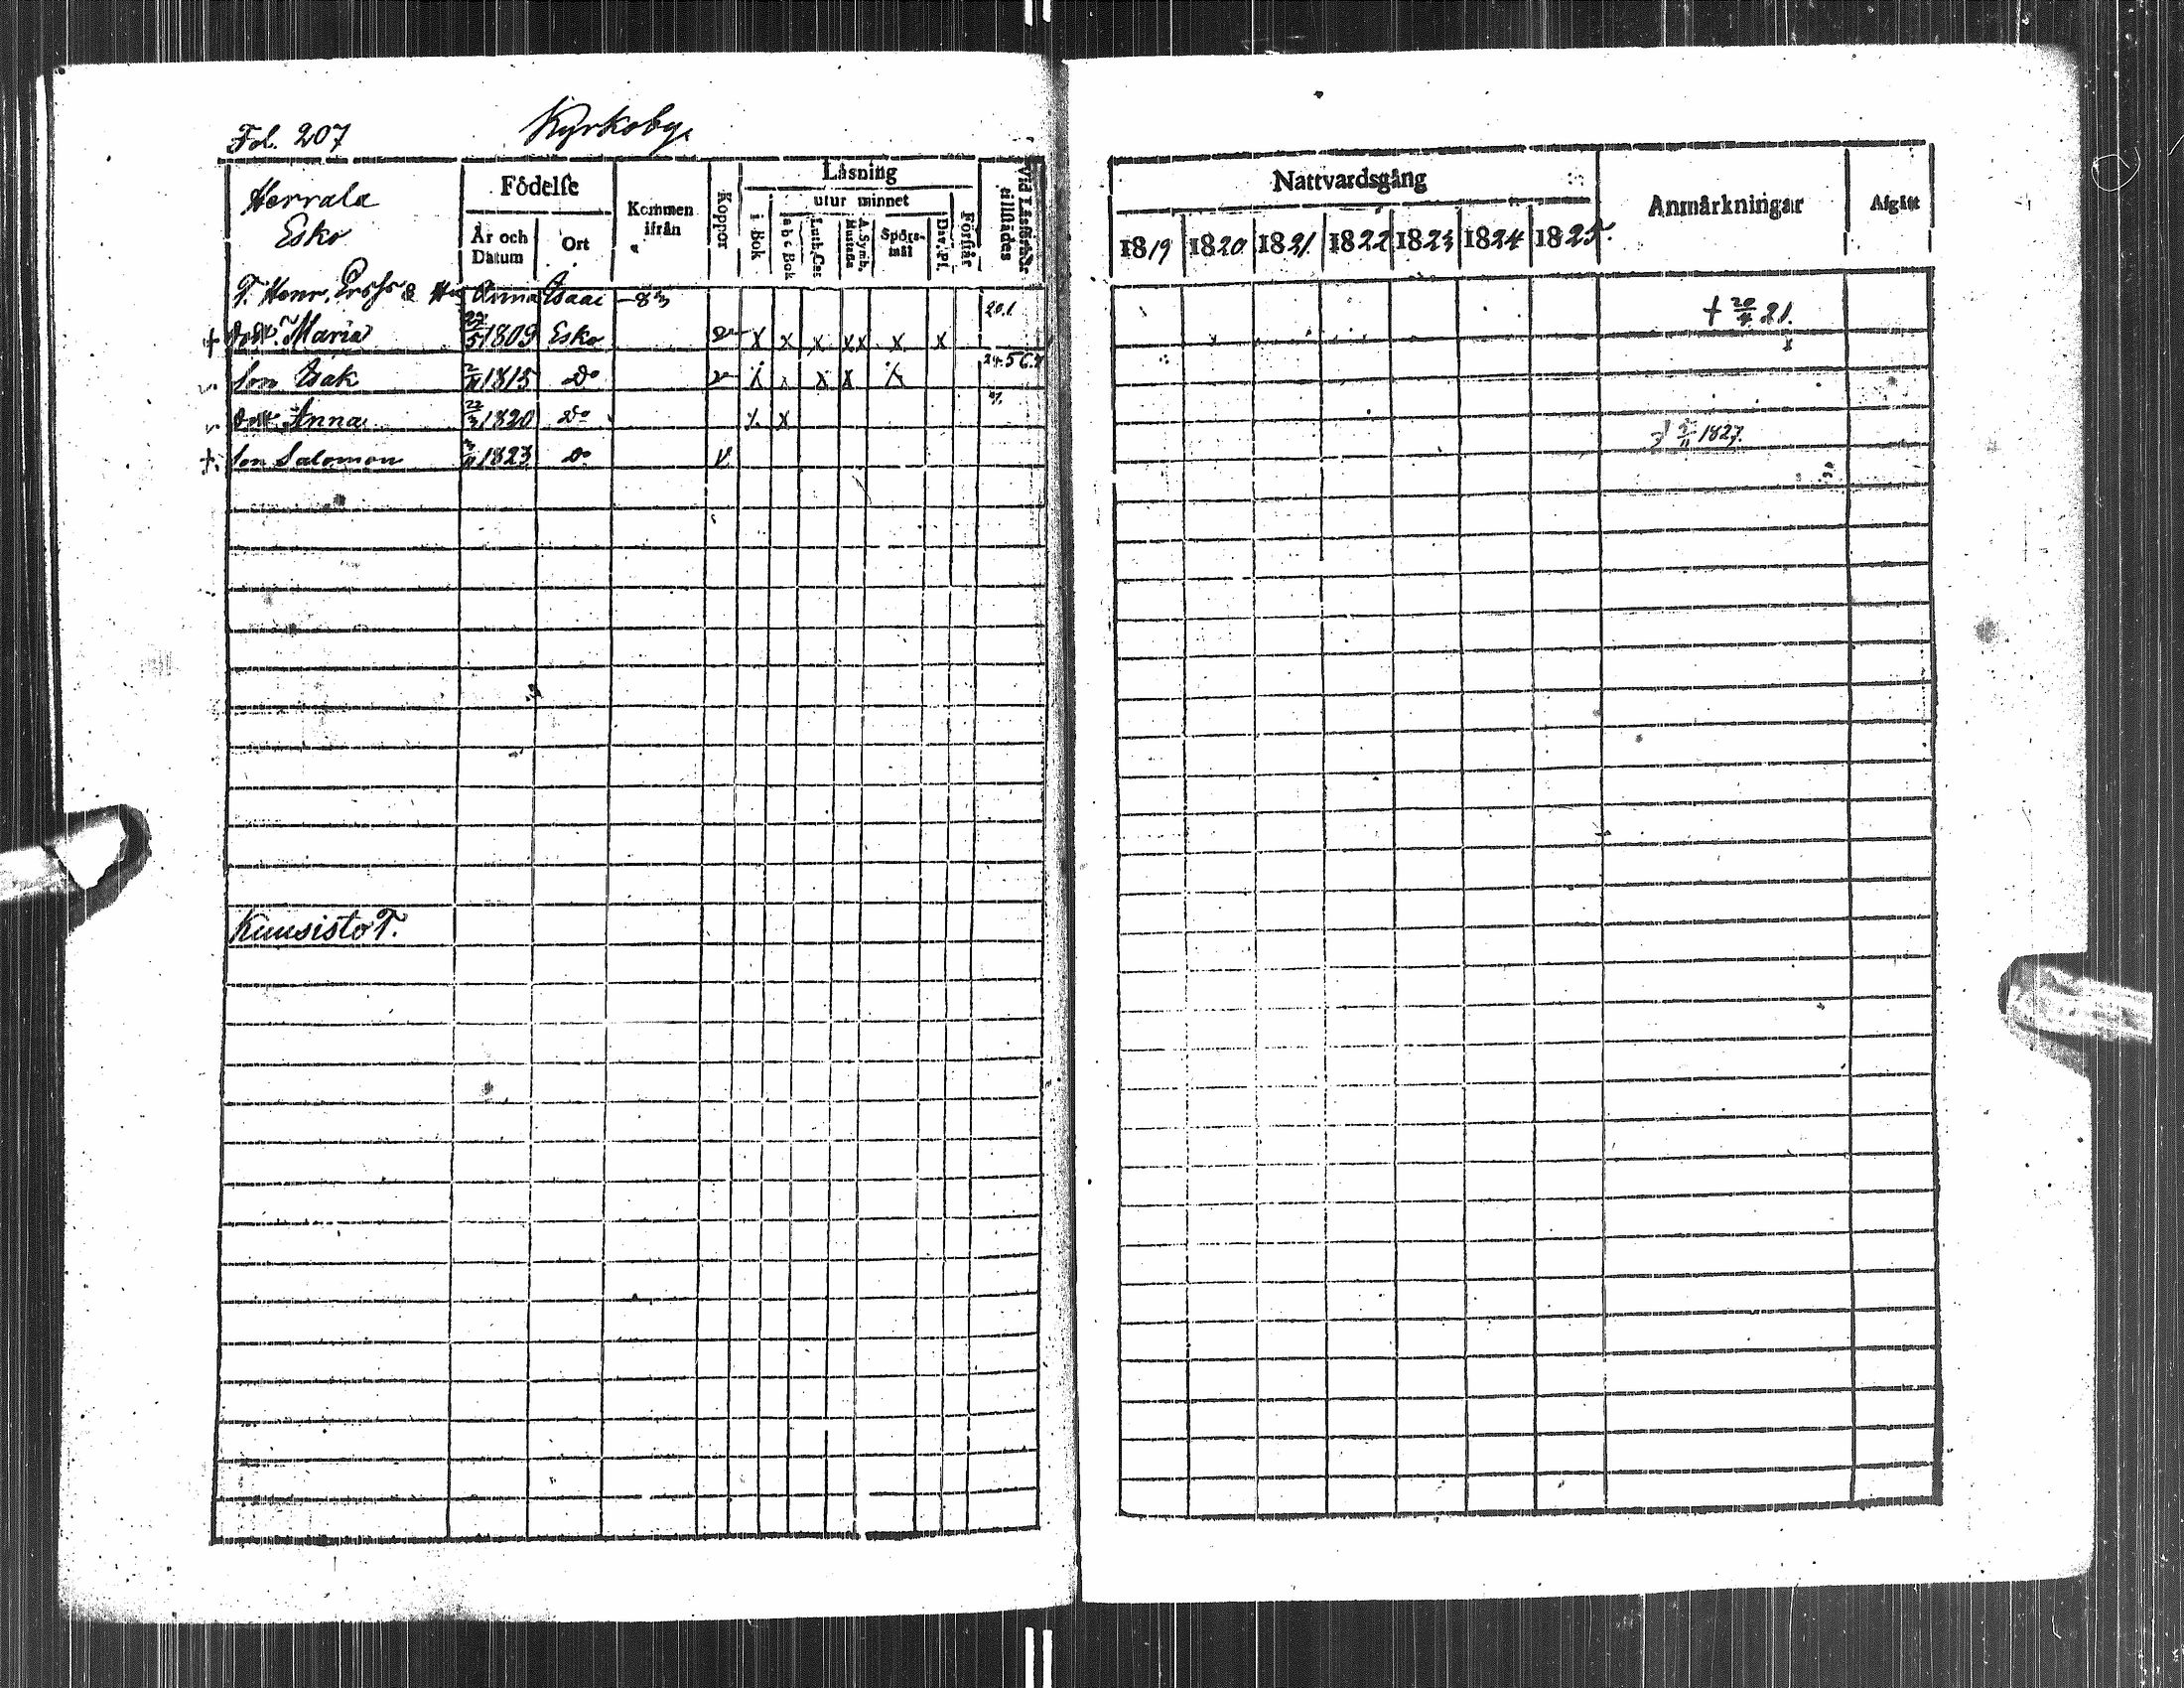 Fol. 207 Kyrkoby.
Herrala
Esko
Födelse
År och Datum
Ort
Kommen ifrån
Koppor
Läsning
i Bok
utur minnet
a b c Bok
Luth. Cat
A. Symb. Hustafla
Spörs-mål
Dav. Ps.
Förstår
Vid Läsförhör tillstädes
T. Henr. Anna Isaac
+ dott. Maria 27/5 1809 Esko v x x x xx x x
son Isak 1815 Do v x x x x x 24.5 6.7
dott. Anna 22/3 1820 Do x x
+ son Salomon 1823 Do v
Kuusisto T.
Nattvardsgång
1819 1820 1821 1822 1823 1824 1825.
Anmärkningar
Afgått
+ 20/4 21.
1827.